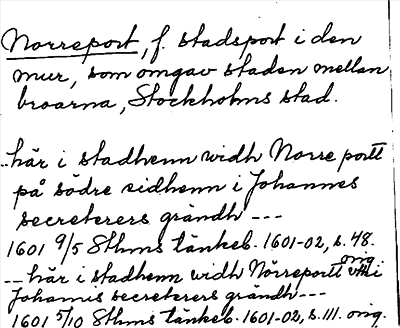 Norreport, f. stadsport i den
mur, som omgav staden mellan
broarna, Stockholms stad.
..här i stadhenn widh Norre portt
på södre sidhenn i Johannes
secreterers grändh ---
1601 9/5 Sthms tänkeb. 1601-02, s. 48.
orig.
--- här i stadhenn widh Nörreportt vtti
Johannis secreterers grändh ---
1601 5/10 Sthms tänkeb. 1601-02, s. 111. orig.